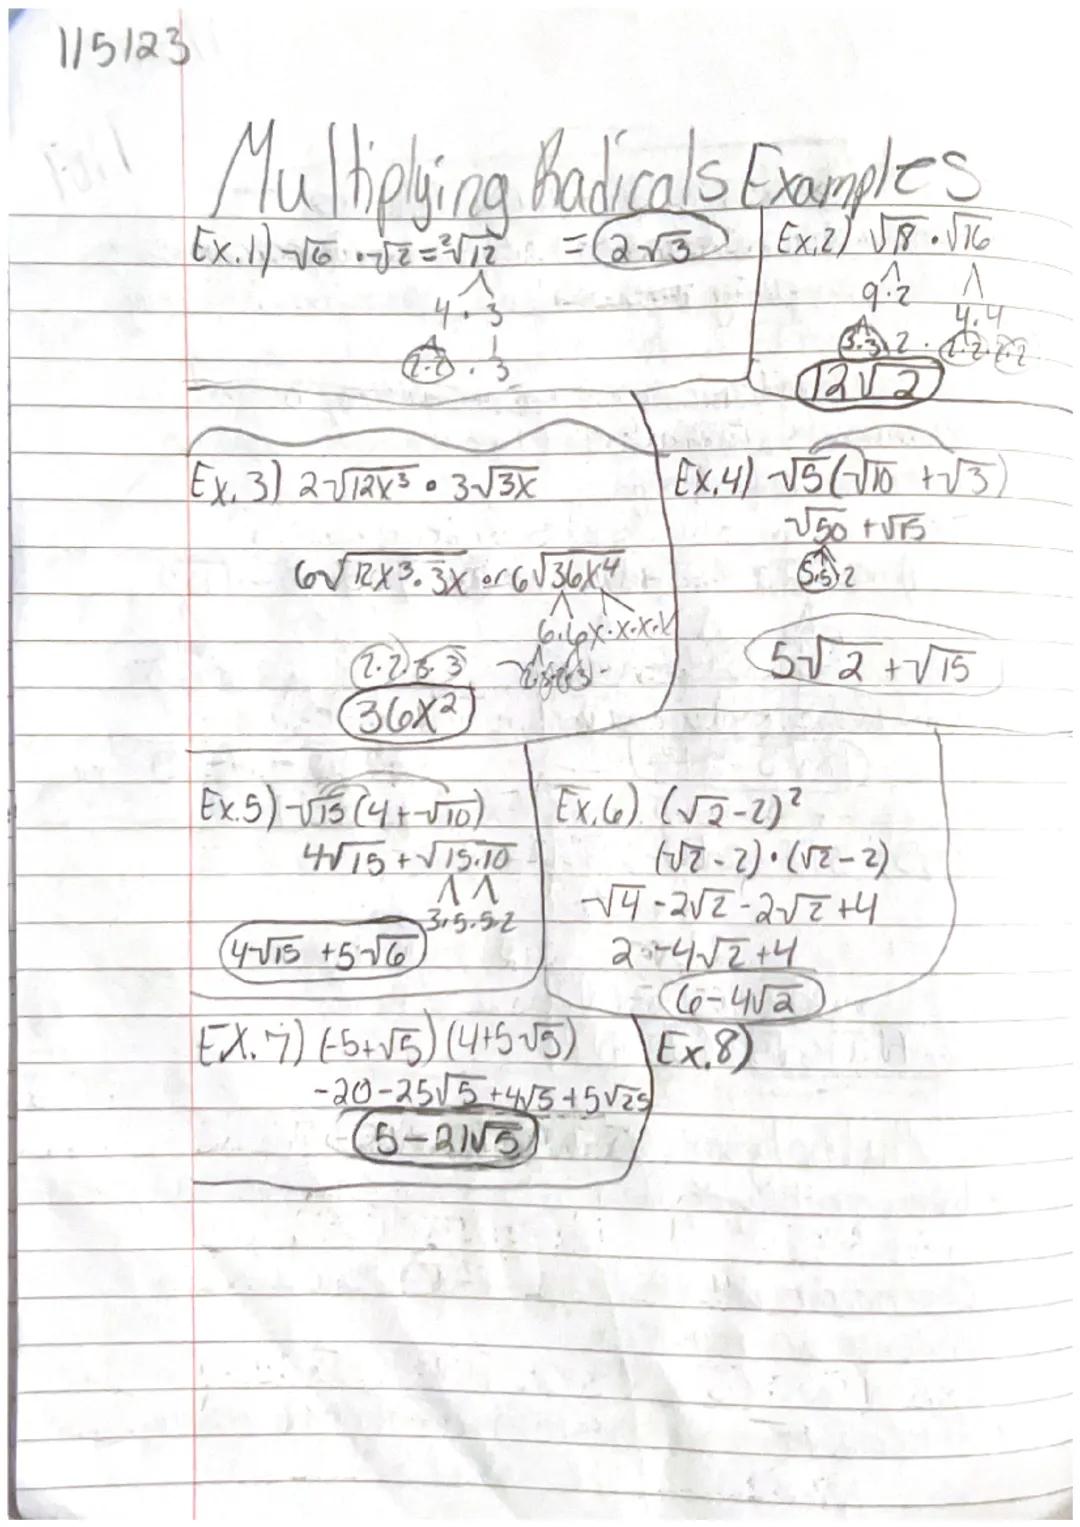 1/5/23
Multiplying Radicals Examples
Ex.1) √6 · √2 = ²√12 = 2√3
4 · 3
2·2 · 3
Ex.2) √18 · √16
9·2
4·4
3·3 2 · 2·2·2·2
12√2
Ex.3) 2√12x³ · 3√3x
6√12x³·3x or 6√36x⁴
6·6x·x·x·x
2·2·3·3
36x²
Ex.4) √5(√10 + √3)
√50 + √15
5·5·2
5√2 + √15
Ex.5) √15(4+√10)
4√15 + √15·10
3·5·5·2
4√15 + 5√6
Ex.6) (√2-2)²
(√2-2)·(√2-2)
√4-2√2-2√2+4
2-4√2+4
6-4√2
EX.7) (-5+√5)(4+5√5)
-20-25√5+4√5+5√25
5-21√5
Ex.8)